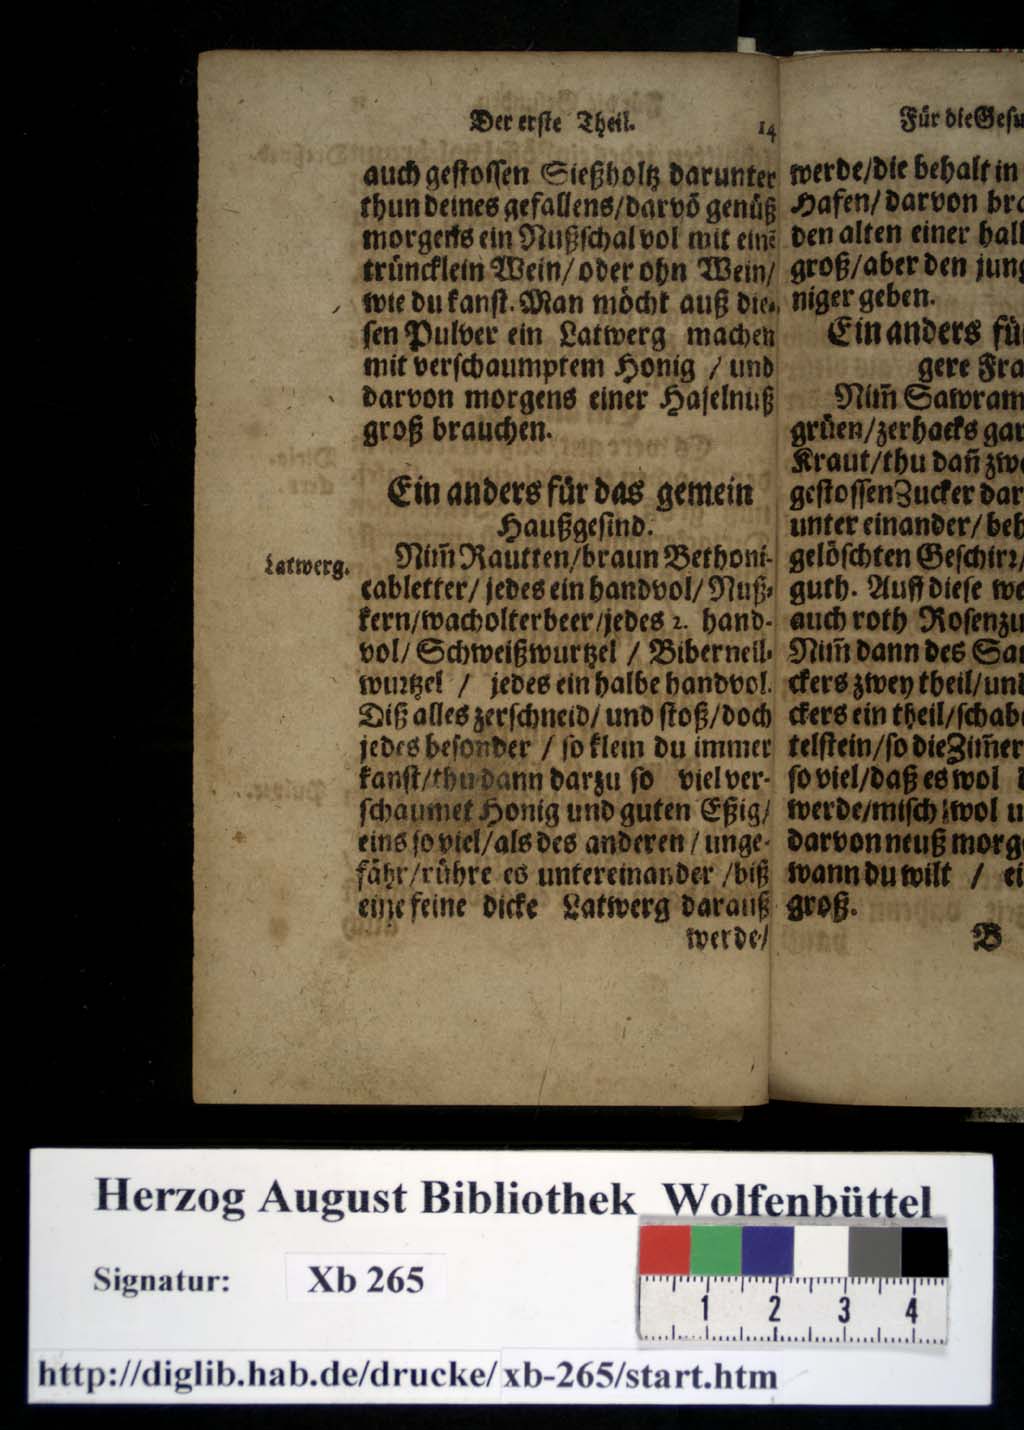 Der erste Theil. 14
auch gestossen Sießholtz darunter
thun deines gefallens/darvō genüß
morgens ein Nußschal vol mit einē
trüncklein Wein/ oder ohn Wein/
wie du kanst. Man möcht auß die-
sen Pulver ein Latwerg machen
mit verschaumptem Honig / und
darvon morgens einer Haselnuß
groß brauchen.
Ein anders für das gemein
Haußgesind.
Latwerg.
Nim̄ Rautten/braun Bethoni-
cabletter/ jedes ein handvol/ Nuß-
kern/wacholterbeer/jedes 2. hand-
vol/ Schweißwurtzel / Biberneil-
wurtzel / jedes ein halbe handvol.
Diß alles zerschneid/ und stoß/doch
jedes besonder / so klein du immer
kanst/thu dann darzu so viel ver-
schaumet Honig und guten Eßig/
eins so viel/als des anderen / unge-
fähr/rühre es untereinander /biß
eine feine dicke Latwerg darauß
werde/
Für die Gesu
werde/die behalt in
Hafen/ darvon bra
den alten einer hall
groß/aber den jung
niger geben.
Ein anders fü
gere Fra
Nim̄ Sawram
grüen/zerhacks gar
Kraut/thu dañ zwe
gestossen Zucker dar
unter einander/ beh
gelöschten Geschirr/
guth. Auff diese we
auch roth Rosenzu
Nim̄ dann des Sau
ckers zwey theil/und
ckers ein theil/schab
telstein/so die Zim̄er
so viel/daß es wol
werde/misch wol u
darvon neuß morg
wann du wilt / ei
groß.
B
Herzog August Bibliothek Wolfenbüttel
Signatur: Xb 265
1 2 3 4
http://diglib.hab.de/drucke/xb-265/start.htm